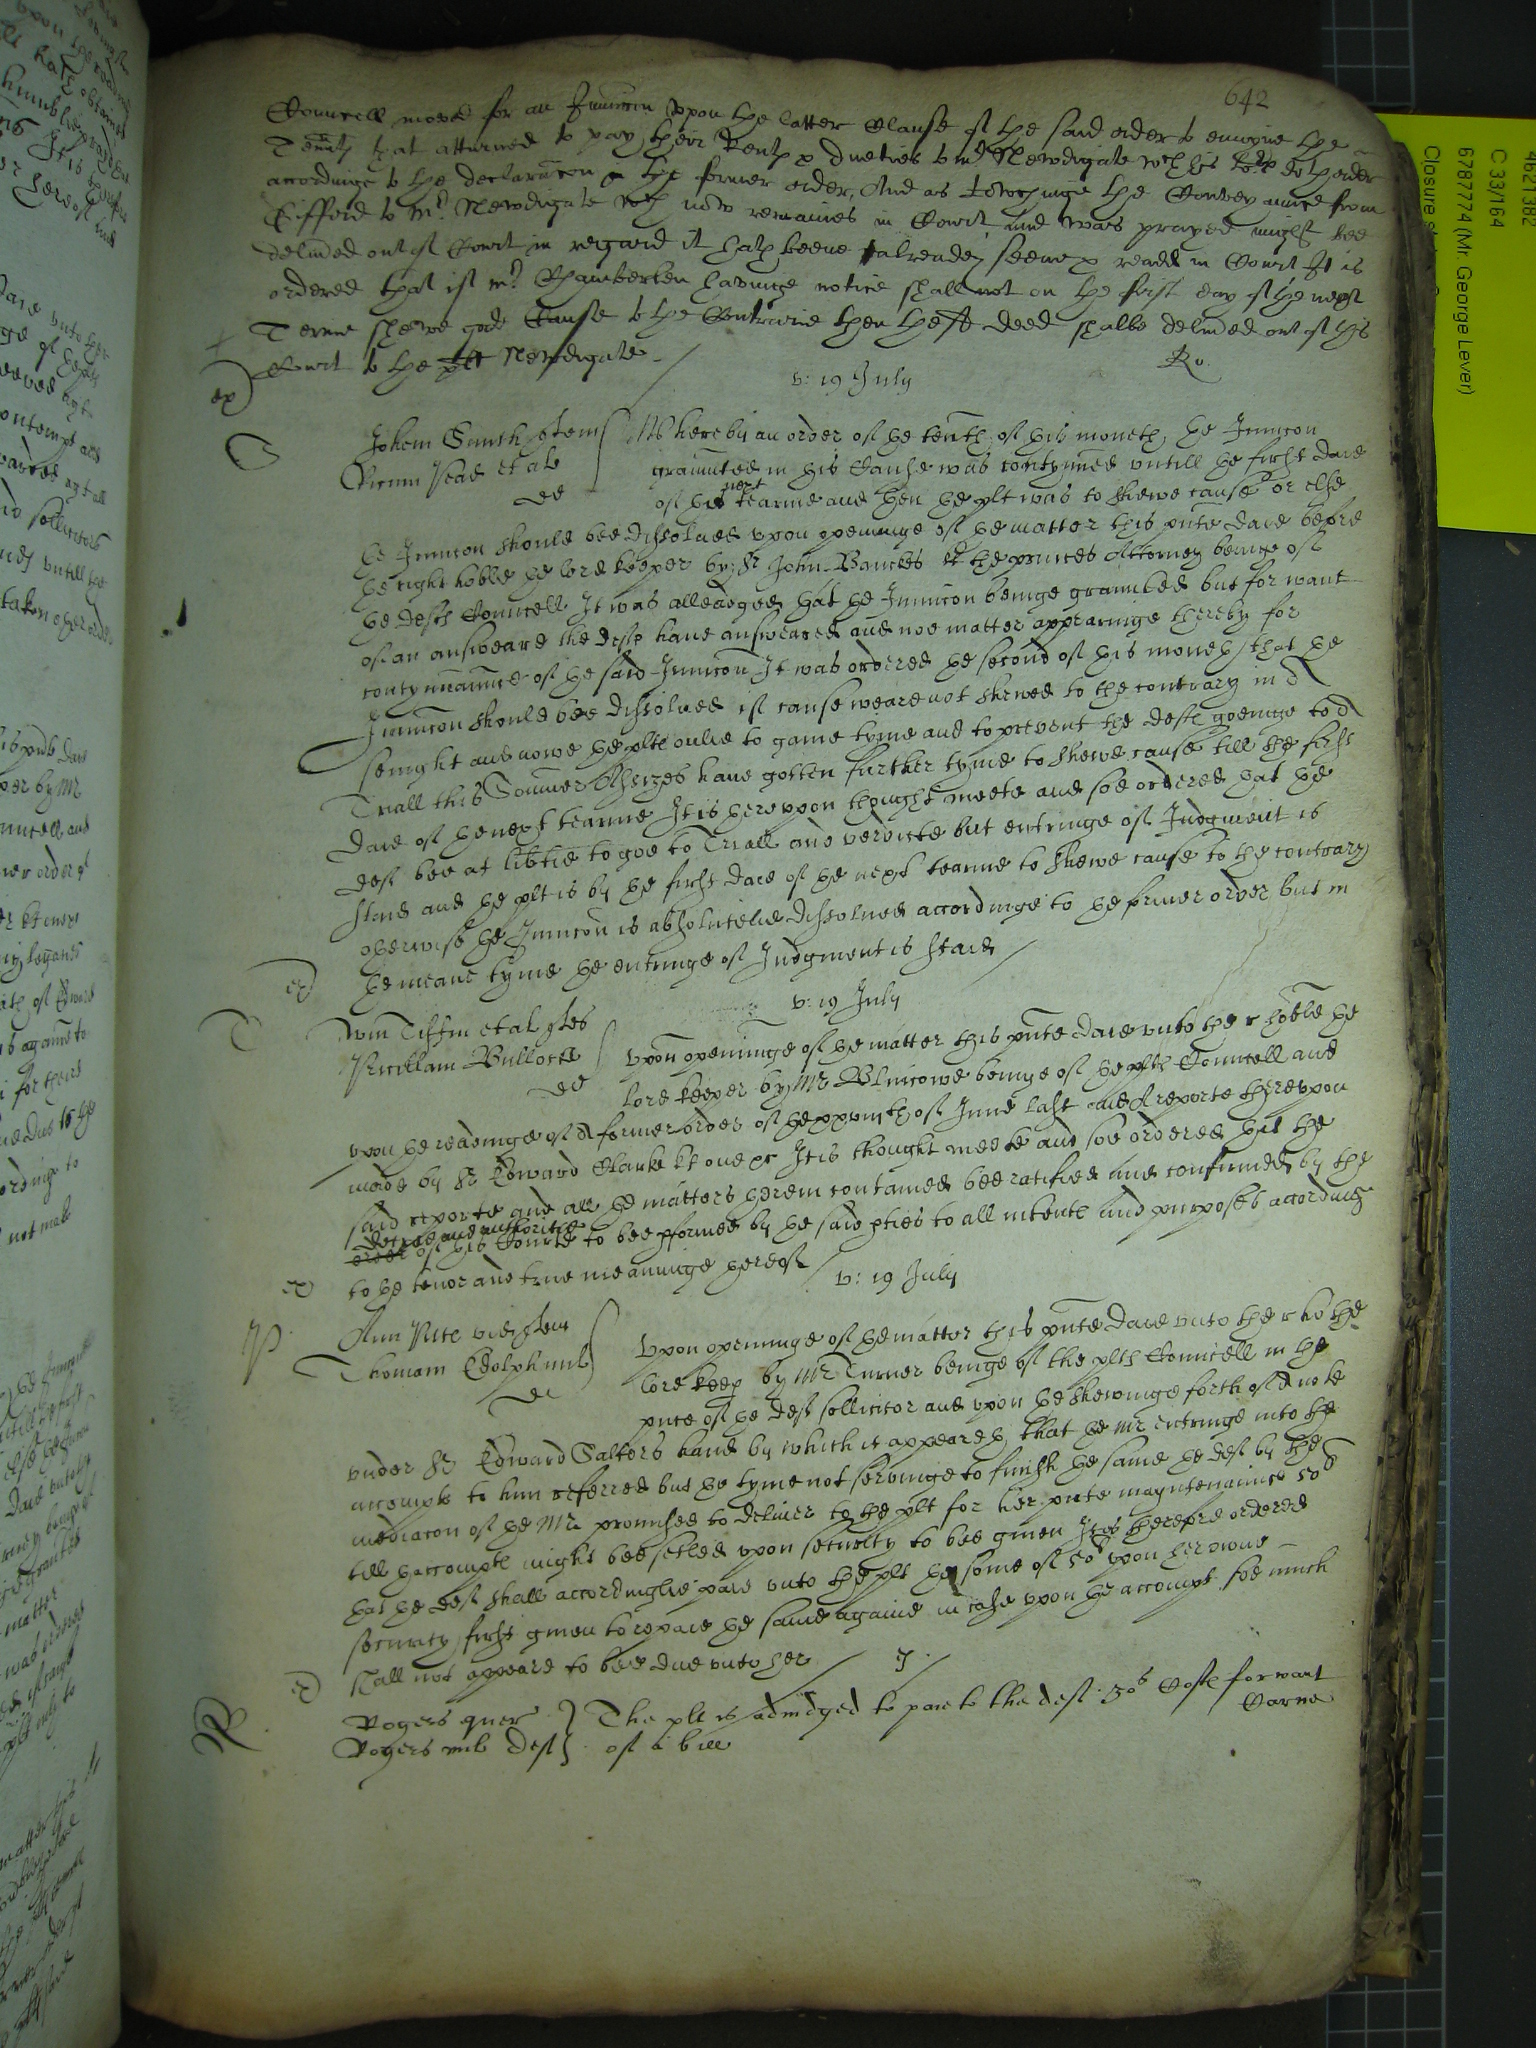 642
Councell moved for an Iniuncon upon the latter Clause of the said order to enioyne the
Tennts that atturned to pay their Rents & dueties to mr Newdigate wch his doth order
accordinge to the declaracon in the former order, And as towchinge the Convey ance from
Gifford to Mr Newdigate wch now remaines in Court and was prayed might bee
delived out of Court in regard it hath beene alreadey seene & readd in Court It is
ordered that if mr Chamberlen havinge notice shall not on the first day of the next
Terme shewe good Cause to the Contrarie then the deed shalbe delived out of this
Court to the plt Newdigate
Ro.
v: 19 July
ex)
C
Johem Smith quer
et al
dd
Whereby an order of the tenth of this moneth, the Iniuncon
graunted in this Cause was contynued untill the first daie
of the next tearme and then the plt was to shewe cause or else
the Iniuncon should bee dissolved upon openinge of the matter this pnte daie before
the right hoble the lord keeper by Sr John Banckes kt the princes Attorney beinge of
the defts Councell It was alleadged that the Iniuncon beinge graunted but for want
of an answeare the defts have answeared and noe matter appearinge thereby for
contynnuance of the said Iniuncon It was ordered the second of this moneth that the
Iniuncon should bee dissolved if cause weare not shewed to the contrary in a
sennight and nowe the plts onlie to gaine tyme and to prevent the defts goeinge to a
Triall this Sommer Assizes have gotten further tyme to shewe cause till the first
daie of the next tearme It is hereupon thought meete and soe ordered that the
deft bee at libtie to goe to Triall and verdicte but entringe of Iudgment is
staid and the plt is by the first daie of the next tearme to shewe cause to the contrary
otherwise the Iniuncon is absolutelie dissolved accordinge to the former order but in
the meane tyme the entringe of Iudgment is staid
ex)
v: 19 July
T
Wm Tiffin et al ques
Willam Bullocke
dd
Upon openinge of the matter this pnte daie unto the r hoble the
lord keeper by Mr Blincowe beinge of the plts Councell and
upon the readinge of a former order of the xxvith of June last and of reporte thereupon
made by Sr Edward Clarke kt one &c It is thought meete and soe ordered that the
said reporte and all the matters therein contained bee ratified and confirmed by the
decree and authoritie
order of this Courte to bee pformed by the said pties to all intents and purposes accordinge
to the tenor and true meaninge thereof
ex)
v: 19 July
Ann vid quer
Thomam mil
dd
Upon openinge of the matter this pnte daie unto the r ho the
lord keep by Mr Turner beinge of the plts Councell in the
pnce of the defts sollicitor and upon the shewinge forth of a note
under Sr Edward Salters hand by which it appeareth that the Mr entringe into the
accompts to him referred but the tyme not servinge to finish the same the deft by the
mediacon of the Mr promised to deliver to the plt for her pnte mayntenaunce 50l
till thaccompts might bee setled upon security to bee given It is therefore ordered
that the deft shall accordinglie paie unto the plt the some of 50l upon her owne
security first given to repaie the same againe in case upon the accompt soe much
shall not appeare to bee due unto her
ex)
J
R
Rogers quer
Rogers mil deft
The plt is adiudged to paie to the deft 30s Costs for want
of a bill
Carne
4621382
C 33/164
6787774 (Mr George Lever)
Closure